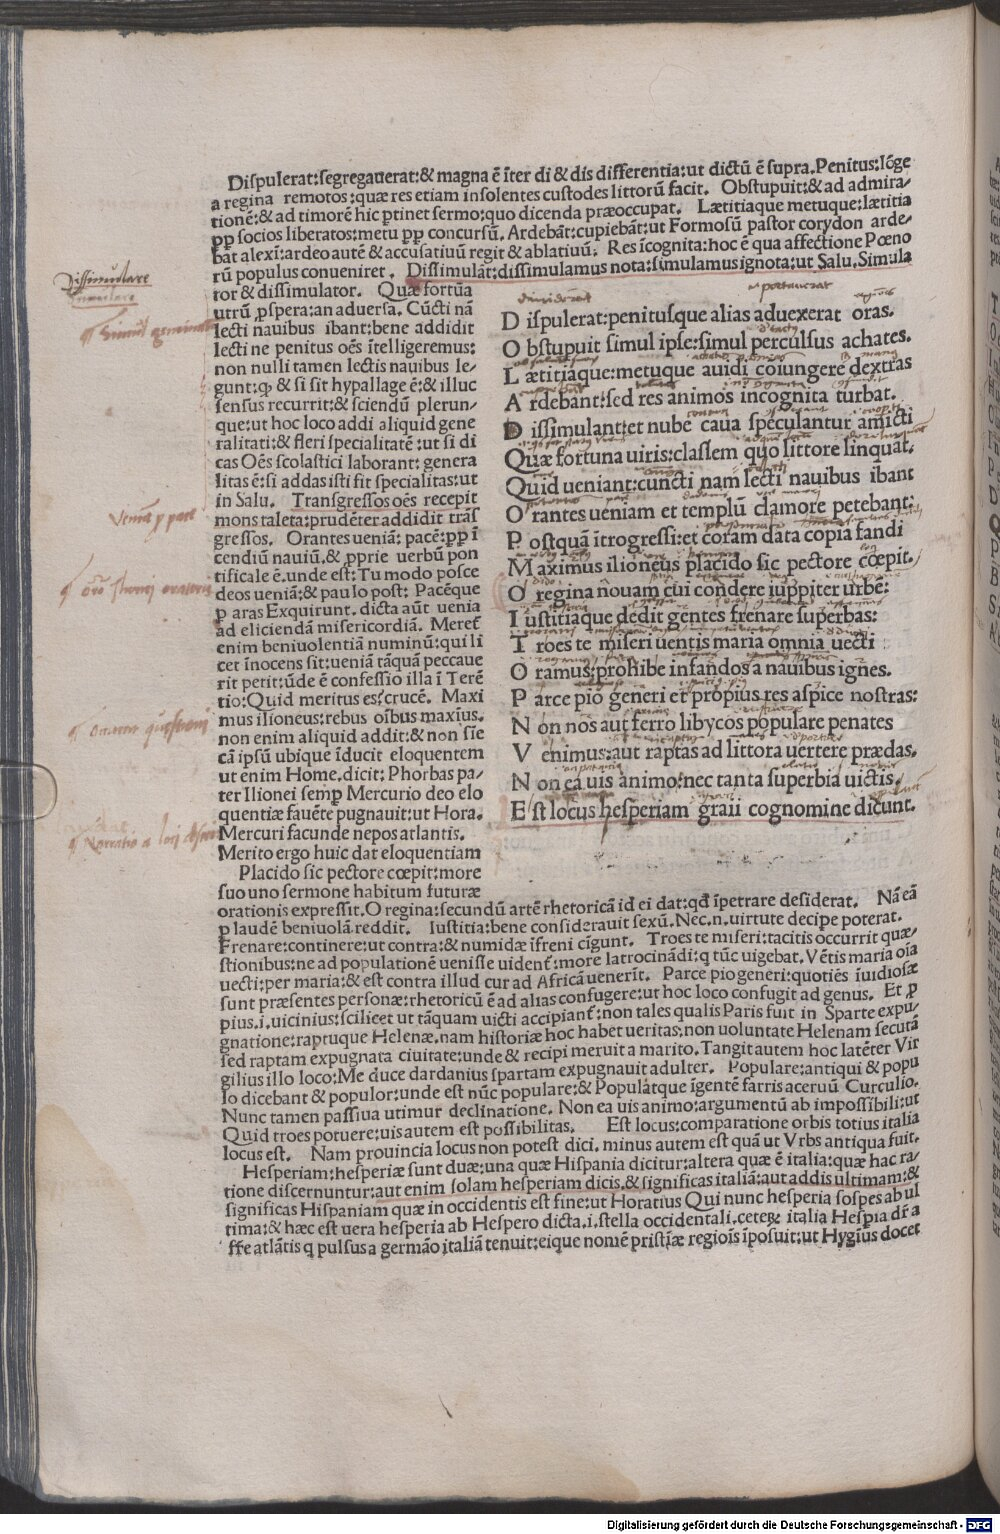 Dispulerat:segregauerat:& magna ē īter di & dis differentia:ut dictū ē supra.Penitus:lōge
a regina remotos:quæ res etiam insolentes custodes littorū facit. Obstupuit:& ad admira-
tionē:& ad timorē hic ꝑtinet sermo:quo dicenda præoccupat. Lætitiaque metuque:lætitia
ꝓꝑ socios liberatos:metu ꝓꝑ concursū.Ardebāt:cupiebāt:ut Formosū pastor corydon arde-
bat alexī:ardeo autē & accusatiuū regit & ablatiuū. Res īcognita:hoc ē qua affectione Pœno
rū populus conueniret. Dissimulāt:dissimulamus nota:simulamus ignota:ut Salu.Simula
tor & dissimulator. Quæ fortūa
utrū ꝓspera:an aduersa. Cūcti nā
lecti nauibus ibant:bene addidit
lecti ne penitus oēs ītelligeremus:
non nulli tamen lectis nauibus le-
gunt:ꝙ & si sit hypallage ē:& illuc
sensus recurrit:& sciendū plerun-
que:ut hoc loco addi aliquid gene
ralitati:& fieri specialitatē:ut si di
cas Oēs scolastici laborant: genera
litas ē:si addas isti fit specialitas:ut
in Salu. Transgressos oēs recepit
mons taleta:prudēter addidit trās
gressos. Orantes ueniā: pacē:ꝓꝑ ī
cendiū nauiū,& ꝓprie uerbū pon
tificale ē.unde est:Tu modo posce
deos ueniā:& paulo post: Pacēque
ꝑ aras Exquirunt.dicta aūt uenia
ad eliciendā misericordiā. Meret̄
enim beniuolentiā numinū:qui li
cet īnocens sit:ueniā tāquā peccaue
rit petit:ūde ē confessio illa ī Terē
tio:Quid meritus es?crucē. Maxi
mus ilioneus:rebus oībus maxīus.
non enim aliquid addit:& non sīe
cā ipsū ubique īducit eloquentem
ut enim Home.dicit: Phorbas pa-
ter Ilionei semꝑ Mercurio deo elo
quentiæ fauēte pugnauit:ut Hora.
Mercuri facunde nepos atlantis.
Merito ergo huic dat eloquentiam
Placido sic pectore cœpit:more
suo uno sermone habitum futuræ
Dispulerat:penitusque alias aduexerat oras.
Obstupuit simul ipse:simul perculsus achates.
Lætitiaque:metuque auidi coiungere dextras
Ardebant:sed res animos incognita turbat.
Dissimulant:et nube caua speculantur amicti
Quæ fortuna uiris:classem quo littore linquat.
Quid ueniant:cuncti nam lecti nauibus ibant
Orantes ueniam et templū clamore petebant:
Postquā itrogressi:et coram data copia fandi
Maximus ilioneus placido sic pectore cœpit.
O regina nouam cui condere iuppiter urbē:
Iustitiaque dedit gentes frenare superbas:
Troes te miseri uentis maria omnia uecti
Oramus:prohibe infandos a nauibus ignes.
Parce pio generi et propius res aspice nostras:
Non nos aut ferro libycos populare penates
Venimus:aut raptas ad littora uertere prædas.
Non ea uis animo:nec tanta superbia uictis.
Est locus hesperiam graii cognomine dicunt.
orationis expressit.O regina:secundū artē rhetoricā id ei dat:qđ īpetrare desiderat. Nā eā
ꝑ laudē beniuolā reddit. Iustitia:bene considerauit sexū.Nec.n.uirtute decipe poterat.
Frenare:continere:ut contra:& numidæ īfreni cīgunt. Troes te miseri:tacitis occurrit quæ-
stionibus:ne ad populationē uenisse uident̄:more latrocinādi:q tūc uigebat.Vētis maria oīa
uecti:per maria:& est contra illud cur ad Africā uenerīt. Parce pio generi:quotiēs īuidiosæ
sunt præsentes personæ:rhetoricū ē ad alias confugere:ut hoc loco confugit ad genus. Et ꝓ
pius.i.uicinius:scilicet ut tāquam uicti accipiant̄:non tales qualis Paris fuit in Sparte expu-
gnatione:raptuque Helenæ.nam historiæ hoc habet ueritas:non uoluntate Helenam secutā
sed raptam expugnata ciuitate:unde & recipi meruit a marito.Tangit autem hoc latēter Vir
gilius illo loco:Me duce dardanius spartam expugnauit adulter. Populare:antiqui & popu
lo dicebant & populor:unde est nūc populare:& Populatque īgentē farris aceruū Curculio.
Nunc tamen passiua utimur declinatione. Non ea uis animo:argumentū ab impossibili:ut
Quid troes potuere:uis autem est possibilitas. Est locus:comparatione orbis totius italia
locus est. Nam prouincia locus non potest dici.minus autem est quā ut Vrbs antiqua fuit.
Hesperiam:hesperiæ sunt duæ:una quæ Hispania dicitur:altera quæ ē italia:quæ hac ra-
tione discernuntur:aut enim solam hesperiam dicis,& significas italiā:aut addis ultimam:&
significas Hispaniam quæ in occidentis est fine:ut Horatius Qui nunc hesperia sospes ab ul
tima:& hæc est uera hesperia ab Hespero dicta.i.stella occidentali.ceteꝝ italia Hespia dr̄ a
ffe atlātis q pulsus a germāo italiā tenuit:eique nomē pristīæ regiois īposuit:ut Hyginus docet
Dissimulare
Digitalisierung gefördert durch die Deutsche Forschungsgemeinschaft - DFG